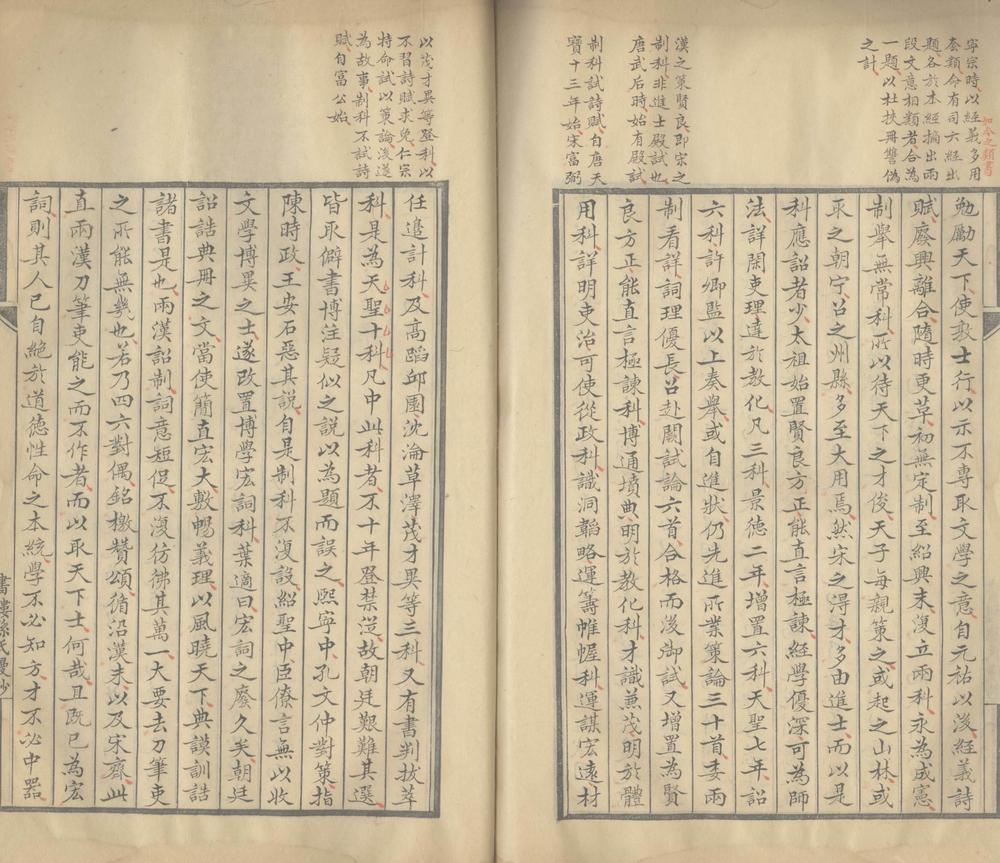 寧宗時以經義多用
套類命有司六經出
題各於本經摘出兩
段文意相類者合為
一題以杜挾冊讐偽
之計
如今之類書
漢之策賢良即宋之
制科非進士殿試也
唐武后時始有殿試
制科試詩賦自唐天
寶十三年始宋富弼
勉勵天下使敦士行以示不專取文學之意自元祐以後經義詩
賦廢興離合隨時更革初無定制至紹興末復立兩科永為成憲
制舉無常科所以待天下之才俊天子每親策之或起之山林或
取之朝宁召之州縣多至大用焉然宋之得才多由進士而以是
科應詔者少太祖始置賢良方正能直言極諫經學優深可為師
法詳閑吏理達於教化凡三科景德二年增置六科天聖七年詔
六科許卿監以上奏舉或自進狀仍先進所業策論三十首委兩
制看詳詞理優長召赴闕試論六首合格而後御試又增置為賢
良方正能直言極諫科博通墳典明於教化科才識兼茂明於體
用科詳明吏治可使從政科識洞韜略運籌帷幄科運謀宏遠材
以茂才異等登科以
不習詩賦求免仁宗
特命試以策論後遂
為故事制科不試詩
賦自富公始
任邊計科及高蹈邱園沈淪草澤茂才異等三科又有書判拔萃
科是為天聖十科凡中此科者不十年登禁從故朝廷艱難其選
皆取僻書博注疑似之說以為題而誤之熙寧中孔文仲對策指
陳時政王安石惡其說自是制科不復設紹聖中臣僚言無以收
文學博異之士遂改置博學宏詞科葉適曰宏詞之廢久矣朝廷
詔誥典冊之文當使簡直宏大敷暢義理以風曉天下典謨訓誥
諸書是也兩漢詔制詞意短促不復彷彿其萬一大要去刀筆吏
之所能無幾也若乃四六對偶銘檄贊頌循沿漢末以及宋齊此
直兩漢刀筆吏能之而不作者而以取天下士何哉且既已為宏
詞則其人已自絕於道德性命之本統學不必知方才不必中器
書樓孫氏鈔